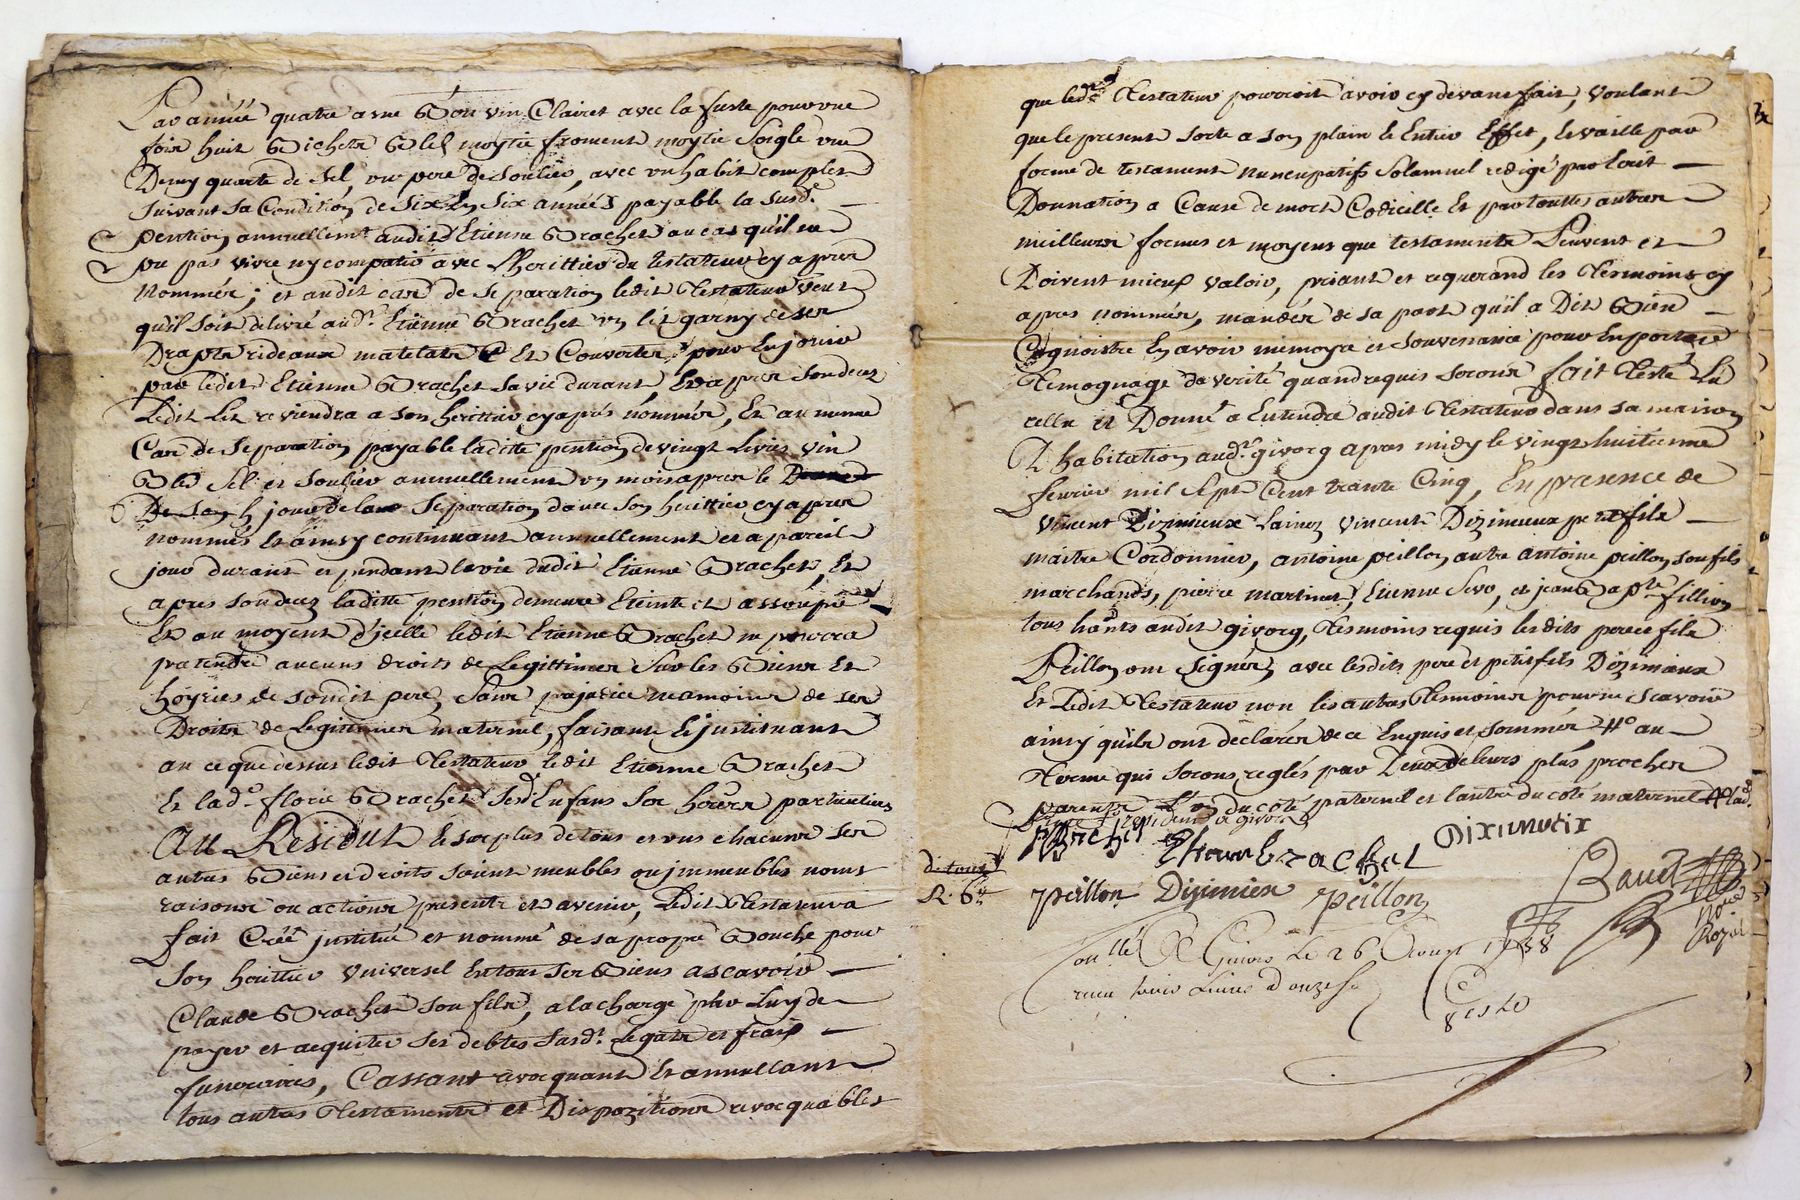 Par année quatre asne Bon vin Clairet avec la fuste pour une
fois huit Bichets Bled moytie froment moytie Soigle une
Demy quarte de Sel, une pere de Soulier, avec un habit complet
Suivant Sa Condition de Six En Six années payable la Susd.e
pention annuellemt audit Etienne Brachet au cas qu'il ne
pu pas vivre ny compatir avec L'herittier du testateur cy apres
Nommés; et audit cas de Separation ledit Testateur veut
qu'il soit délivré aud.t Etienne Brachet un lit garny de ses
Draps rideaux matelats Et Couvertes pour En jouir
par ledit Etienne Brachet Sa vie durant Et apres Son decez
Ledit Lit reviendra a son herittier cy aprés nommés, Et au meme
Cas de Separation payable laditte pention de vingt Livres vin
Bled Sel et Soulier annuellement un mois apres le
jour de la Separation d'avec Son herittier cy apres
nommés Et ainsy continuant annuellement et a pareil
jour durant et pendant la vie dudit Etienne Brachet, Et
apres Son decez laditte pention demeure Eteinte et assoupie
Et au moyent d'jcelle ledit Etienne Brachet ne pourra
pretendre aucuns droits de Legittimes Sur les Biens Et
hoyries de Soudit pere, Sans prejudice neamoins de Ses
Droits de Legittimes maternel, faisant Et justituant
en ce que dessus ledit Testateur ledit Etienne Brachet
Et lad.e florie Brachet Sesd. Enfans Ses hoirs particuliers
AU Residut Et Surplus de tous et uns chacuns Ses
autres Biens et droits Soient meubles ou jmmeubles noms
raisons ou actions presents et avenir, Ledit Testateur a
fait Créé justitué et nommé de sa propre Bouche pour
Son herittier Universel En tous Ses Biens ascavoir
Claude Brachet Son fils, a la charge par Luy de
payer et acquiter Ses debtes Susd.t Legats et fraix
funeraires, Cassant revocquant Et annullant
tous autres Testaments et Dispozitions revocquables
que led.t Testateur pourroit avoir cy devant fait, Voulant
que le present Sorte a Son plain Et Entier Effet, Et vaille par
forme de testament nuncupatifs Solamnel redigé par Ecrit
Donnation a Cause de mort Codicille Et par touttes autres
meilleurs formes et moyens que testaments Peuvent et
Doivent mieux valoir, priant et requerand les Tesmoins cy
apres nommés, mandés de sa part qu'il a Dit Bien
Cognoistre En avoir memoyre et Souvenance pour En porter
Temognage de verité quand requis Seront fait Testé Lû
relu et Donné a Entendre audit Testateur dans Sa maison
D'habitation aud.t givorg apres midy le vingt huitieme
fevrier mil Sept Cent trante Cinq, En presence de
vincent Dizimieux Lainez Vincent Dizimieux petit fils
maitre Cordonnier, antoine peillon autre antoine peillon Son fils
marchands, pierre martinet, Etienne Sevo, et jean Bap.te fillion
tous hants audit givorg, Tesmoins requis lesdits pere et fils
Peillon ont Signés avec lesdits pere et petit fils Dizimieux
Et Ledit Testateur non les autres Tesmoins pour ne Scavoir
ainsy qu'ils ont declarés de ce Enquis et Sommés # au
Terme qui Seront reglés par Deux de leurs plus proches
parents L'un du coté paternel et l'autre du coté maternel # lad.
Brachet Etienne Brachet Diximieix
peillon Dizimieu peillon Baud
no.re Royal
Conllé A Givors Le 26 Aoust 1738
recu trois Livres douze s.